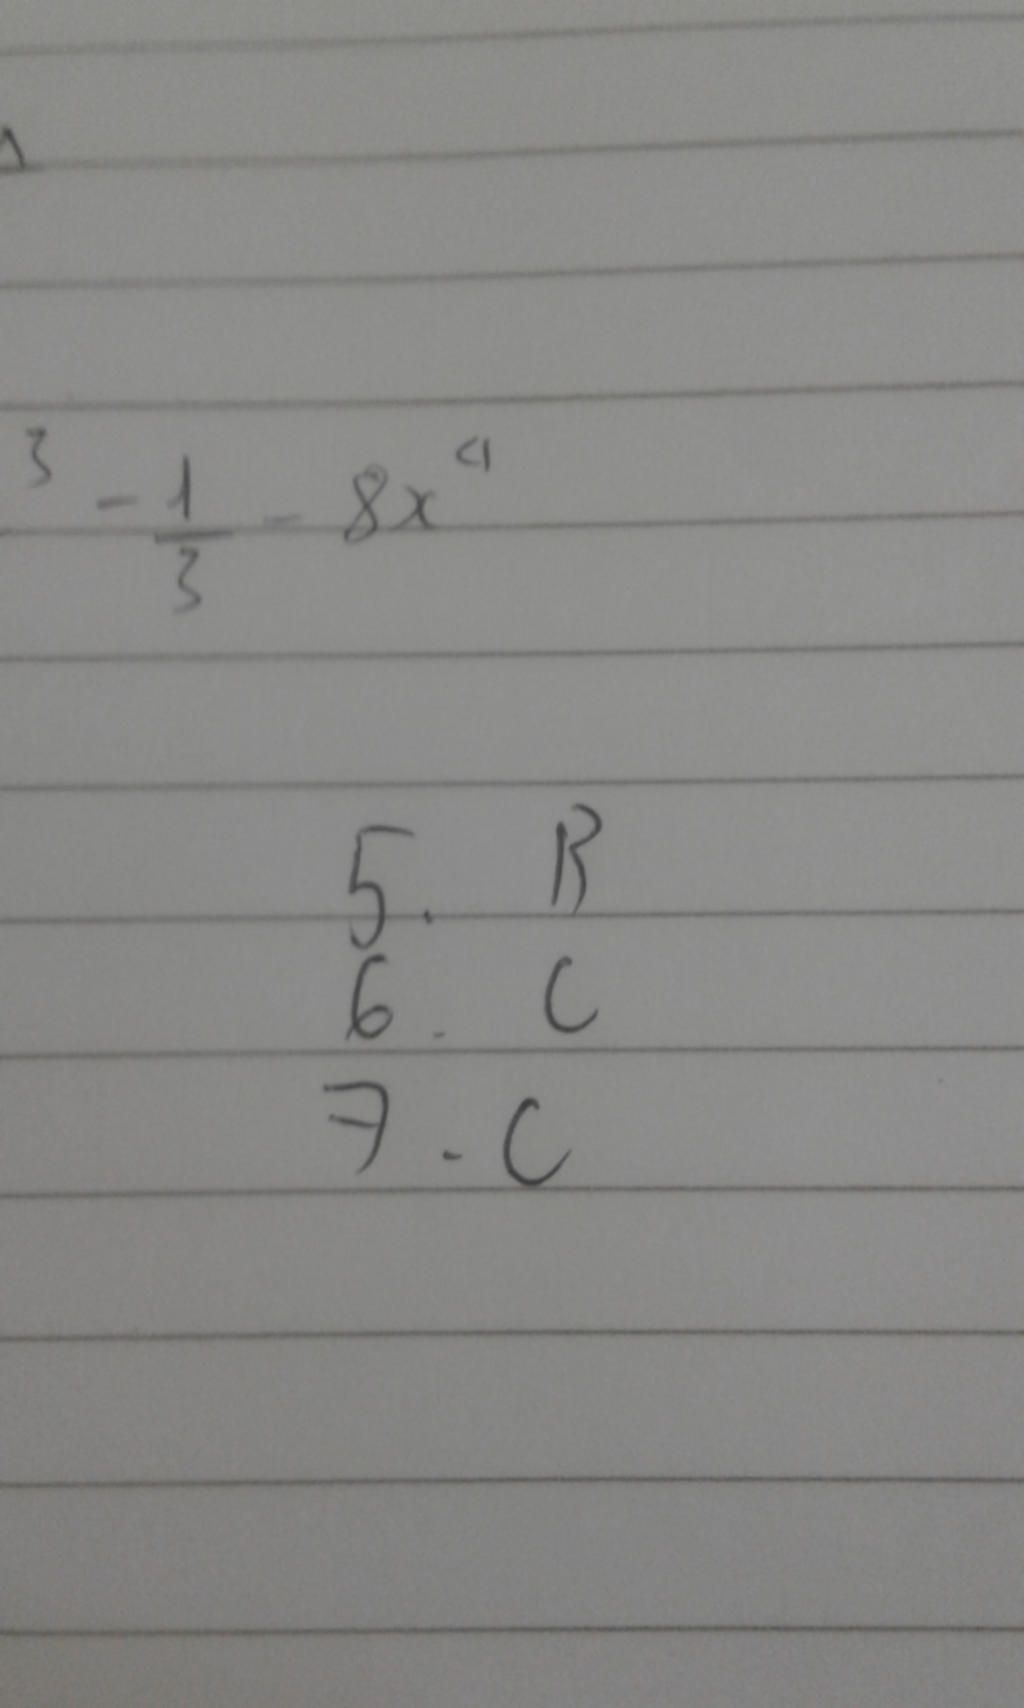 3 - 1/3 - 8x^4
5. B
6. C
7. C